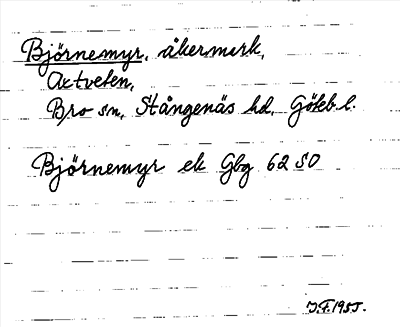 Björnemyr, åkermark,
Axtveten,
Bro sn, Stångenäs hd, Göteb. l.
Björnemyr ek Gbg 62 SO
J.F. 1955.